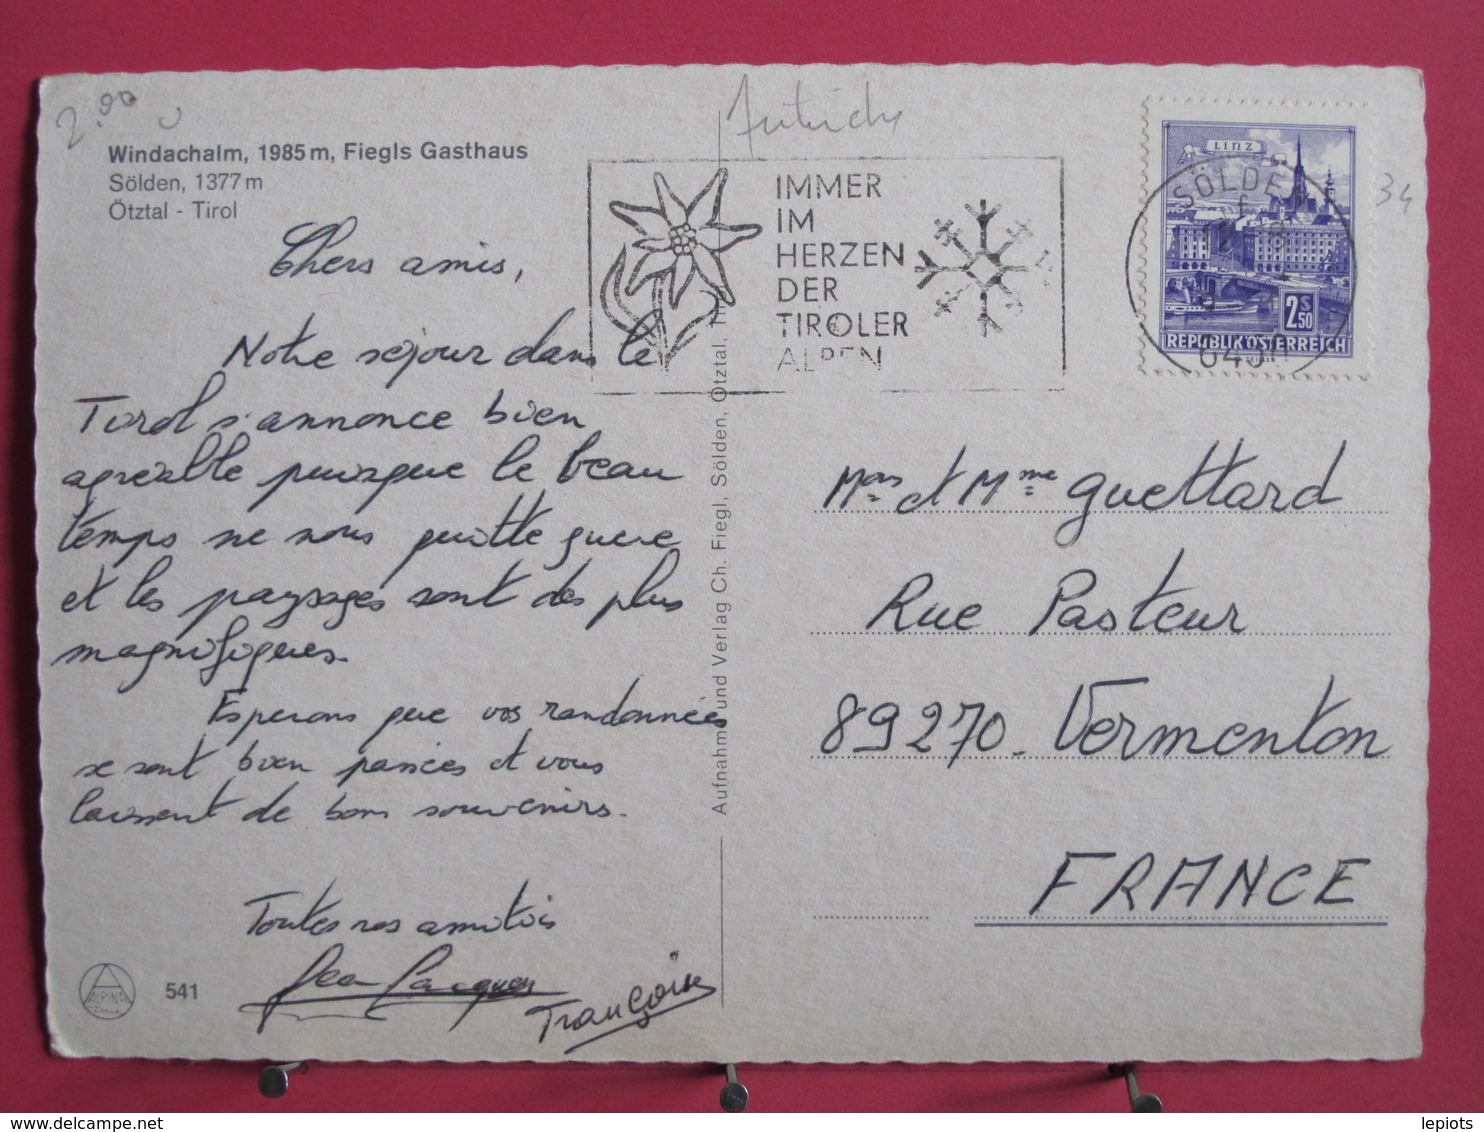 2.90
Autriche
34
Windachalm, 1985 m, Fiegls Gasthaus
Sölden, 1377 m
Ötztal - Tirol
Chers amis,
Notre séjour dans le
Tirol s'annonce bien
agréable puisque le beau
temps ne nous quitte guere
et les paysages sont des plus
magnifiques.
Esperons que vos randonnées
se sont bien passées et vous
laissent de bons souvenirs.
Toutes nos amitiés
Jean Jacques
Françoise
ALPINA
541
Aufnahme und Verlag Ch. Fiegl, Sölden, Ötztal, Tirol
IMMER
IM
HERZEN
DER
TIROLER
ALPEN
SÖLDEN
LINZ
2 S 50
REPUBLIK ÖSTERREICH
Mons et Mme Guettard
Rue Pasteur
89270 - Vermenton
FRANCE
lepiots
www.delcampe.net